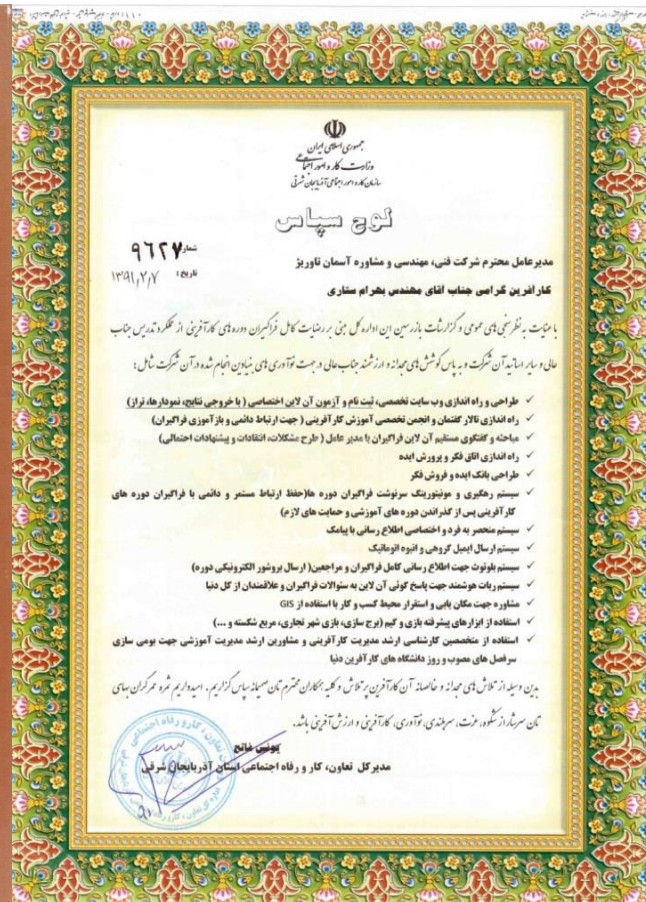 جمهوری اسلامی ایران
وزارت کار و امور اجتماعی
سازمان کار و امور اجتماعی آذربایجان شرقی
لوح سپاس
شماره: ۹۶۲۷
تاریخ: ۱۳۹۱/۲/۷
مدیرعامل محترم شرکت فنی، مهندسی و مشاوره آسمان تاوریژ
کارآفرین گرامی جناب آقای مهندس بهرام ستاری
با عنایت به نظرسنجی های عمومی و گزارشات بازرسین این اداره کل مبنی بر رضایت کامل فراگیران دوره های کارآفرینی از عملکرد تدریس جناب
عالی و سایر اساتید آن شرکت و به پاس کوشش های مجدانه و ارزشمند جناب عالی در جهت نوآوری های بنیادین انجام شده در آن شرکت شامل:
✓ طراحی و راه اندازی وب سایت تخصصی، ثبت نام و آزمون آن لاین اختصاصی ( با خروجی نتایج، نمودارها، تراز)
✓ راه اندازی تالار گفتمان و انجمن تخصصی آموزش کارآفرینی ( جهت ارتباط دائمی و بازآموزی فراگیران)
✓ مباحثه و گفتگوی مستقیم آن لاین فراگیران با مدیر عامل ( طرح مشکلات، انتقادات و پیشنهادات احتمالی)
✓ راه اندازی اتاق فکر و پرورش ایده
✓ طراحی بانک ایده و فروش فکر
✓ سیستم رهگیری و مونیتورینگ سرنوشت فراگیران دوره ها(حفظ ارتباط مستمر و دائمی با فراگیران دوره های
کارآفرینی پس از گذراندن دوره های آموزشی و حمایت های لازم)
✓ سیستم منحصر به فرد و اختصاصی اطلاع رسانی با پیامک
✓ سیستم ارسال ایمیل گروهی و انبوه اتوماتیک
✓ سیستم بلوتوث جهت اطلاع رسانی کامل فراگیران و مراجعین( ارسال بروشور الکترونیکی دوره)
✓ سیستم ربات هوشمند جهت پاسخ گوئی آن لاین به سئوالات فراگیران و علاقمندان از کل دنیا
✓ مشاوره جهت مکان یابی و استقرار محیط کسب و کار با استفاده از GIS
✓ استفاده از ابزارهای پیشرفته بازی و گیم (برج سازی، بازی شهر تجاری، مربع شکسته و ...)
✓ استفاده از متخصصین کارشناسی ارشد مدیریت کارآفرینی و مشاورین ارشد مدیریت آموزشی جهت بومی سازی
سرفصل های مصوب و روز دانشگاه های کارآفرین دنیا
بدین وسیله از تلاش های مجدانه و خالصانه آن کارآفرین پر تلاش و کلیه همکاران محترم تان صمیمانه سپاس گزاریم. امیدواریم ثمره عمر گران بهای
تان سرشار از شکوه، عزت، سربلندی، نوآوری، کارآفرینی و ارزش آفرینی باشد.
یونس فاتح
مدیرکل تعاون، کار و رفاه اجتماعی استان آذربایجان شرقی